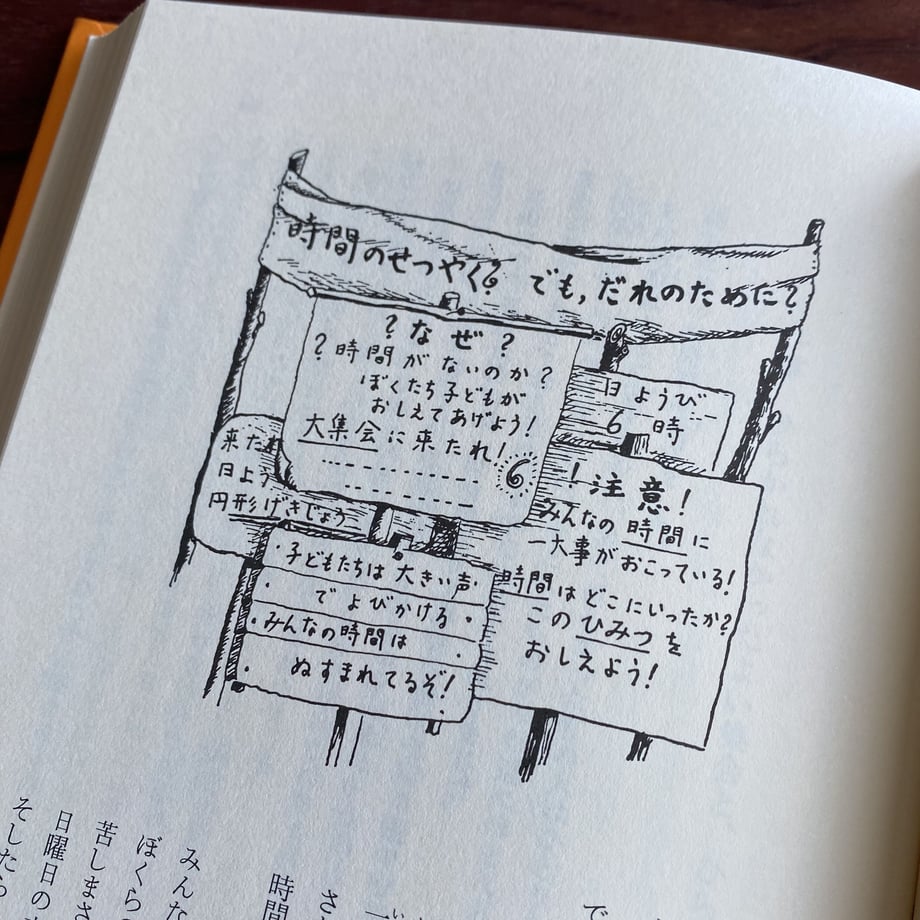 時間のせつやく? でも,だれのために?
?なぜ?
?時間がないのか?
ぼくたち子どもが
おしえてあげよう!
大集会に来たれ!
6
日ようび
6時
来たれ
日よう
円形げきじょう
!注意!
みんなの時間に
一大事がおこっている!
時間はどこにいったか?
このひみつを
おしえよう!
・子どもたちは大きい声
でよびかける
・みんなの時間は
ぬすまれてるぞ!
で
さ
時間
みんな
ぼくらの
苦しまさ
日曜日の
そしたら